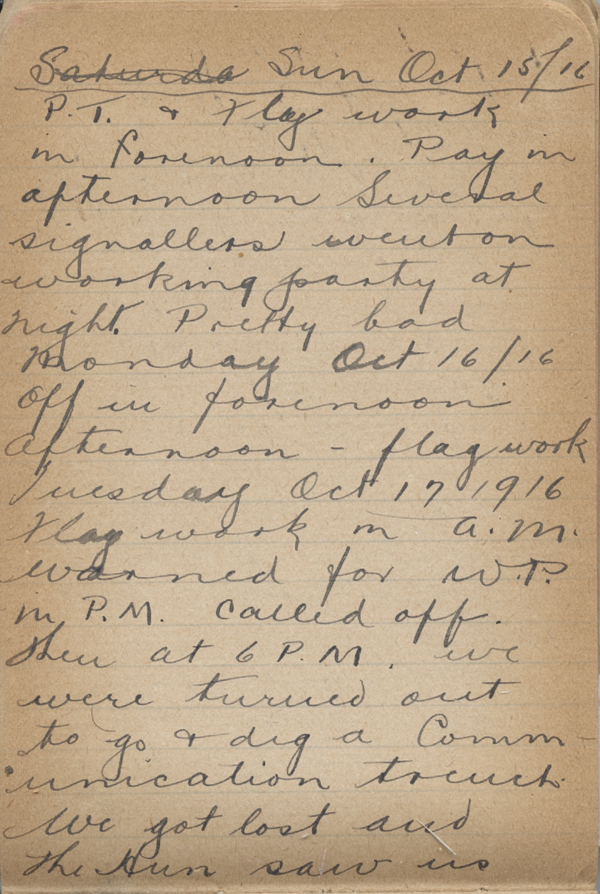 Saturda Sun Oct 15/16
P.T. & Flag work
in forenoon. Pay in
afternoon Several
signallers went on
working party at
night. Pretty bad
Monday Oct 16/16
Off in forenoon
afternoon - flag work
Tuesday Oct 17 1916
Flag work in a.m.
warned for W.P.
in P.M. called off.
then at 6 P.M. we
were turned out
to go & dig a Comm-
unication trench.
We got lost and
the Hun saw us